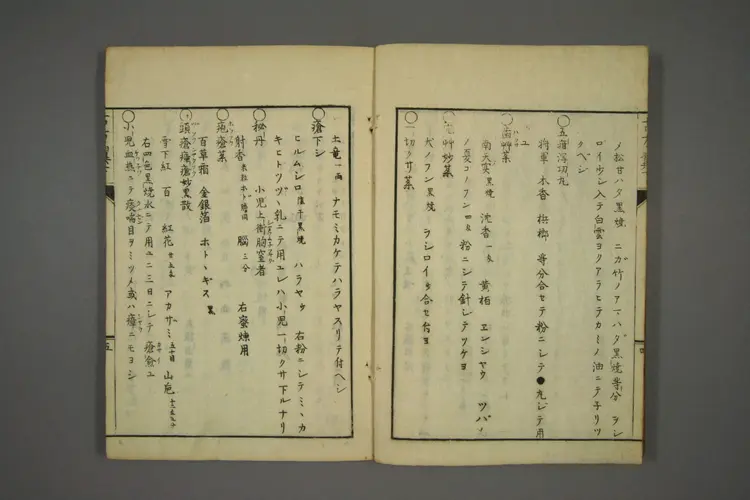 メ松甘ハダ黒焼 ニガ竹ノアマハダ黒焼等分 ヲシ
ロイ少シ入テ白雲ヨクアラヒテカミノ油ニテ子リツ
クベシ
〇五疳瀉切丸
将軍 木香 梹榔 等分合セテ粉ニシテ●丸ジテ用
ユ
〇歯艸薬
南天実黒焼 沈香一匁 黄栢 エンシヤウ ツバメ
ノ糞コノフン四匁粉ニシテ針シテツケヨ
〇艸妙薬
犬ノフン黒焼 ヲシロイヲ合セ付ヨ
〇一切クサ薬
土竜一両 ナモミカケテハラヤスリテ付ベシ
〇瘡下シ
ヒルムシロ黒焼 ハラヤ 右粉ニシテミヽカ
キヒトツヅヽ乳ニテ用ユレハ小児一切クサ下ルナリ
〇秘丹 小児上衝胸塞者
射香 米粒ホド 脳三分 右蜜煉用
〇疱瘡薬
百草霜 金銀箔 ホトヽギス黒
〇頭瘡癢瘡妙黒散
雪下紅 百 紅花 アカザミ五十目 山梔
右四色黒焼水ニテ用ユ二三日ニシテ瘡愈ユ
〇小児血熱ニテ痰喘目ヲミツメ或ハ瘴ニモヨシ
五
四